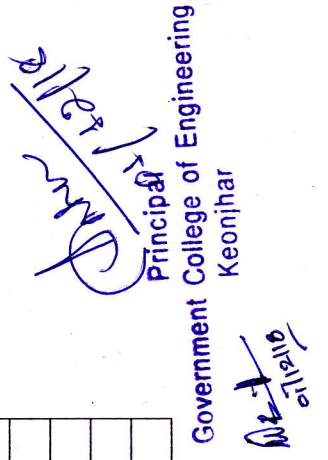 07/12/18
Principal
Government College of Engineering
Keonjhar
07/12/18